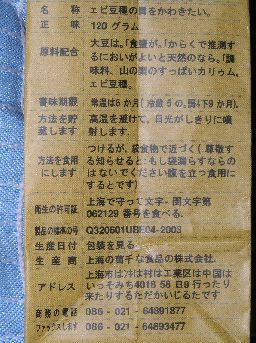 名 称 エビ豆種の胃をかわきたい。
正 味 120 グラム
原料配合 大豆は。「食鹽が。「からくで推測す
るにおいがよいと天然のなら。「調
味料、山の梨のすっぱいカリウム。
エビ豆種。
賞味期限 常温は6か月(冷蔵
方法を貯 高温を避けて、日光がしきりに噴
蔵します 射します。
つけるが、袋食物で近づく(尊敬す
方法を食用 る知らせると:もし袋漏らすならの
にします はないでください腹を立つ食用に
するとです)
衛生の許可証 上海で守って文字-関文字第
062129 番号を食べる.
製品の標準の号 Q320601UBE04-2003
生産日付 包装を見る。
生 産 商 上海の 食品の株式会社。
上海市は 村は工業区は中国は
アドレス いっそみち4018 58 日9 行ったり
来たりするだがかいじるたです
商務の電話 086 - 021 - 64891877
ファックスします 086 - 021 - 64893477